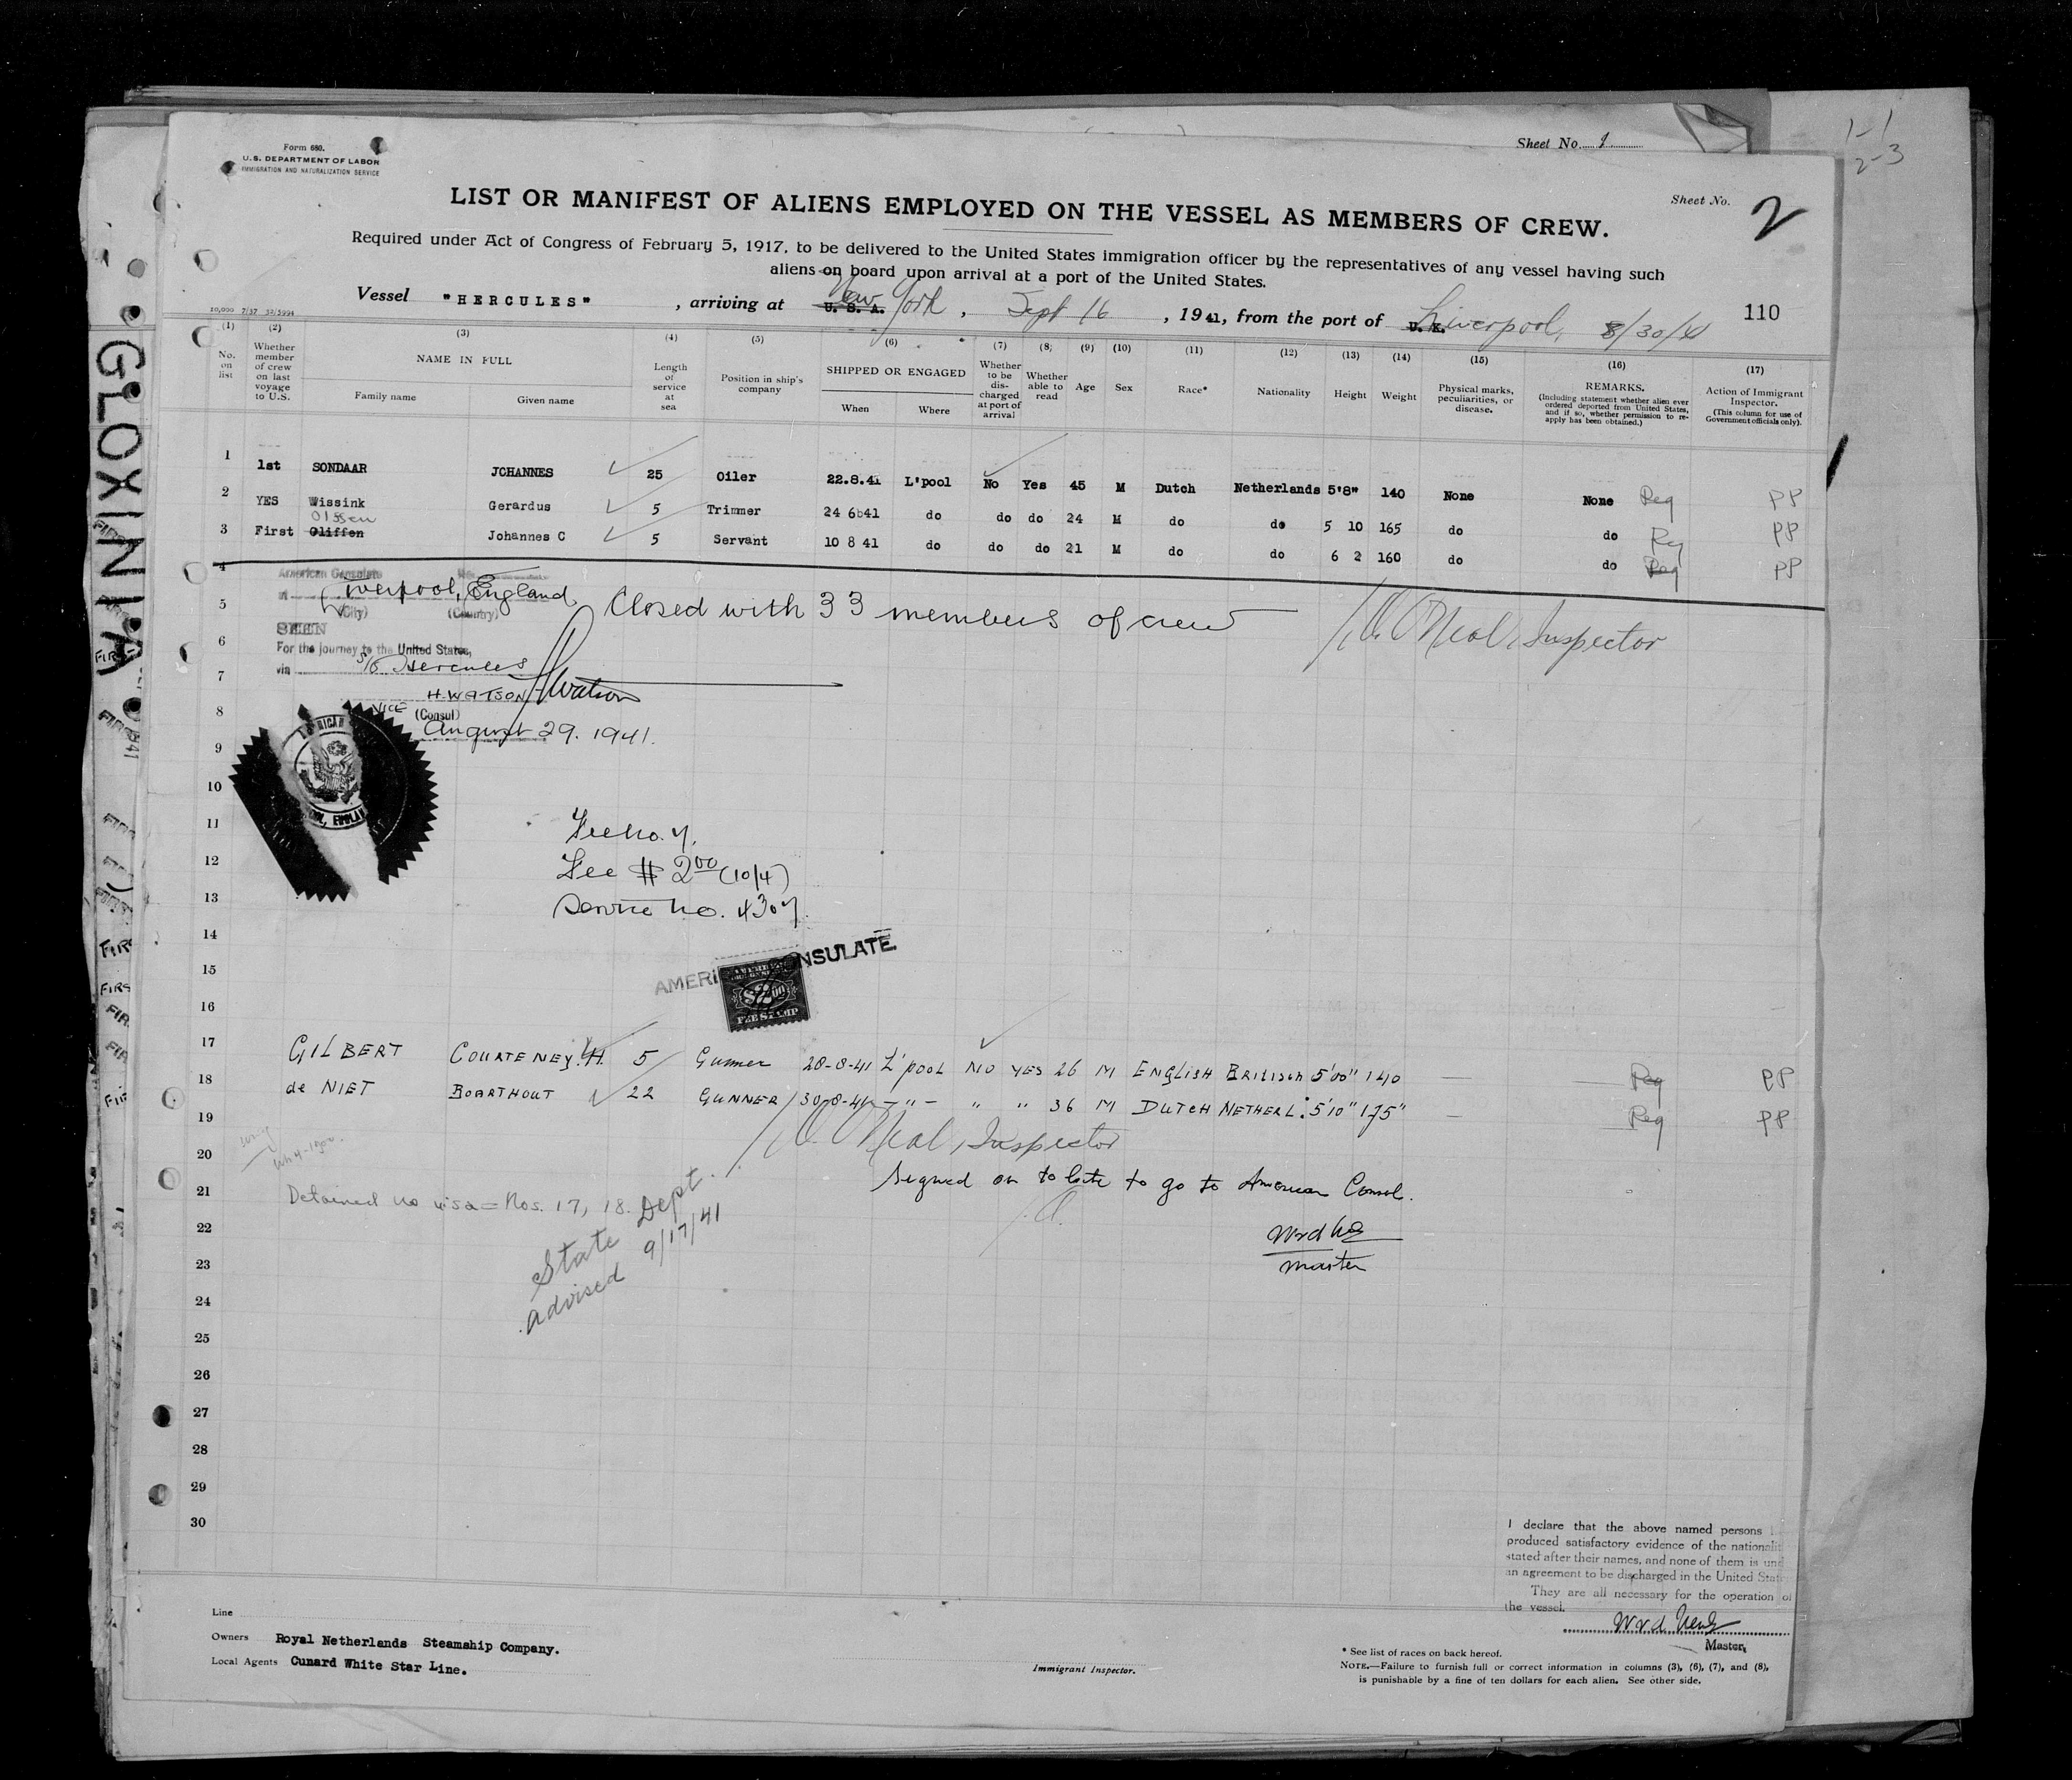 Sheet No. 1
1-1
2-3
Form 680.
U.S. DEPARTMENT OF LABOR
IMMIGRATION AND NATURALIZATION SERVICE
Sheet No. 2
LIST OR MANIFEST OF ALIENS EMPLOYED ON THE VESSEL AS MEMBERS OF CREW.
Required under Act of Congress of February 5, 1917, to be delivered to the United States immigration officer by the representatives of any vessel having such
aliens on board upon arrival at a port of the United States.
Vessel "HERCULES", arriving at U.S.A. New York, Sept 16, 1941, from the port of U.K. Liverpool, 8/30/41
110
10,000 7/37
GLOXINIA
(1) (2) (3) (4) (5) (6) (7) (8) (9) (10) (11) (12) (13) (14) (15) (16) (17)
No. on list
Whether member of crew on last voyage to U.S.
NAME IN FULL
Family name
Given name
Length of service at sea
Position in ship's company
SHIPPED OR ENGAGED
When
Where
Whether to be discharged at port of arrival
Whether able to read
Age
Sex
Race*
Nationality
Height
Weight
Physical marks, peculiarities, or disease.
REMARKS.
(Including statement whether alien ever ordered deported from United States, and if so, whether permission to reapply has been obtained.)
Action of Immigrant Inspector.
(This column for use of Government officials only).
1 1st SONDAAR JOHANNES 25 Oiler 22.8.41 L'pool No Yes 45 M Dutch Netherlands 5'8" 140 None None Reg PP
2 YES Wissink Gerardus 5 Trimmer 24 6 41 do do do 24 M do do 5 10 165 do do Reg PP
Olssen
3 First Oliffen Johannes C 5 Servant 10 8 41 do do do 21 M do do 6 2 160 do do Reg PP
4 American Consulate
5 at Liverpool, England
(City) (Country)
Closed with 33 members of crew
O'Neal, Inspector
6 SEEN
For the journey to the United States,
7 via S/S Hercules
H. WATSON HWatson
8 VICE (Consul)
August 29. 1941.
9
10
11
12
Fee $ 2.00 (10/4)
13
Service No. 4307.
14
AMERICAN CONSULATE
15
$2.00
FEE STAMP
16
17 GILBERT COURTENEY. H. 5 Gunner 28-8-41 L'pool NO YES 26 M ENGLISH British 5'00" 140 Reg PP
18 de NIET BOARTHOUT 22 GUNNER 30-8-41 -"- " " 36 M DUTCH NETHERL. 5'10" 175" Reg PP
19 O'Neal, Inspector
20
Signed on to late to go to American Consul.
21 Detained no visa = Nos. 17, 18.
State Dept.
advised 9/17/41
22
23 master
24
25
26
27
28
29
30
I declare that the above named persons
produced satisfactory evidence of the nationalit
stated after their names, and none of them is und
an agreement to be discharged in the United Stat
They are all necessary for the operation of
the vessel.
Master.
Line
Owners Royal Netherlands Steamship Company.
Local Agents Cunard White Star Line.
Immigrant Inspector.
* See list of races on back hereof.
NOTE.—Failure to furnish full or correct information in columns (3), (6), (7), and (8),
is punishable by a fine of ten dollars for each alien. See other side.